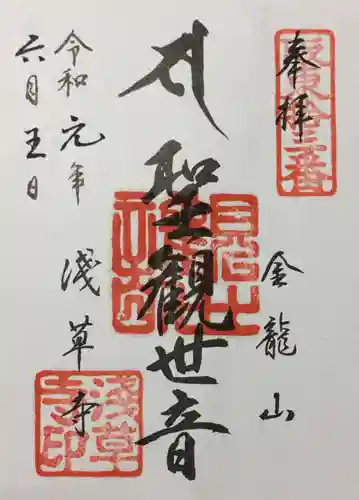 奉拝
坂東拾三番
金龍山
聖観世音
浅草寺
令和元年
六月五日
浅草寺印